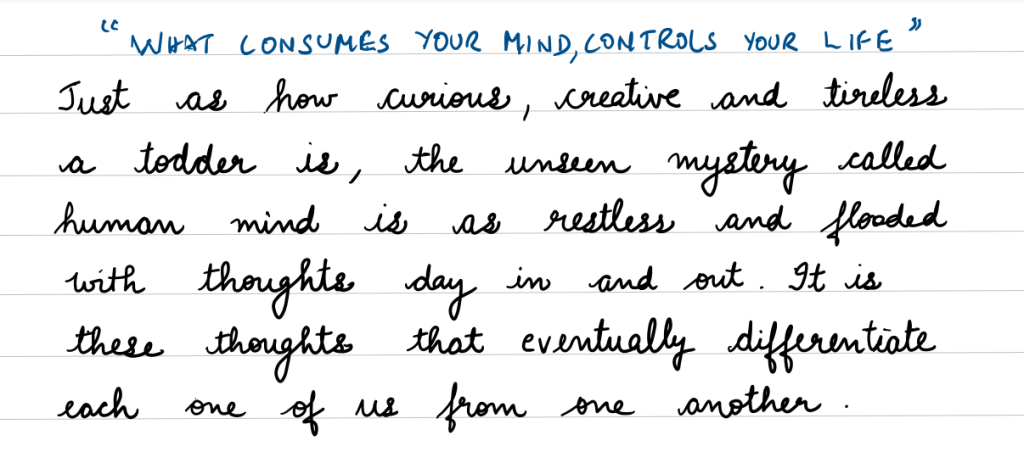 “WHAT CONSUMES YOUR MIND, CONTROLS YOUR LIFE”
Just as how curious, creative and tireless
a todder is, the unseen mystery called
human mind is as restless and flooded
with thoughts day in and out. It is
these thoughts that eventually differentiate
each one of us from one another.